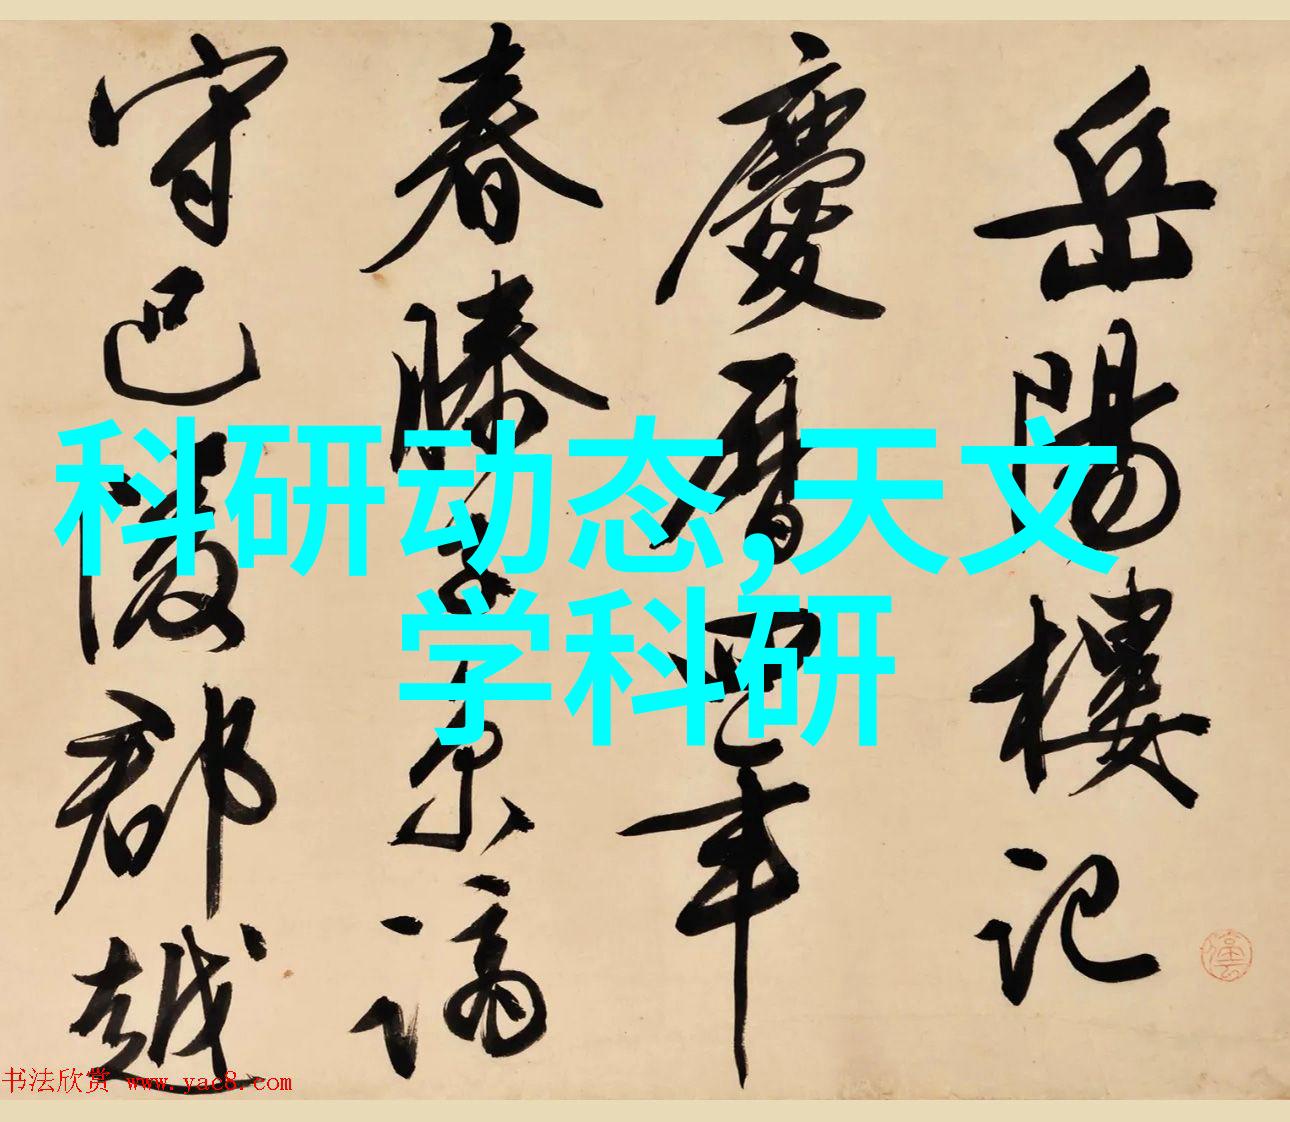 岳陽樓記
慶曆四年
春滕子京謫
守巴陵郡越
科研动态,天文
学科研
书法欣赏 www.yac8.com